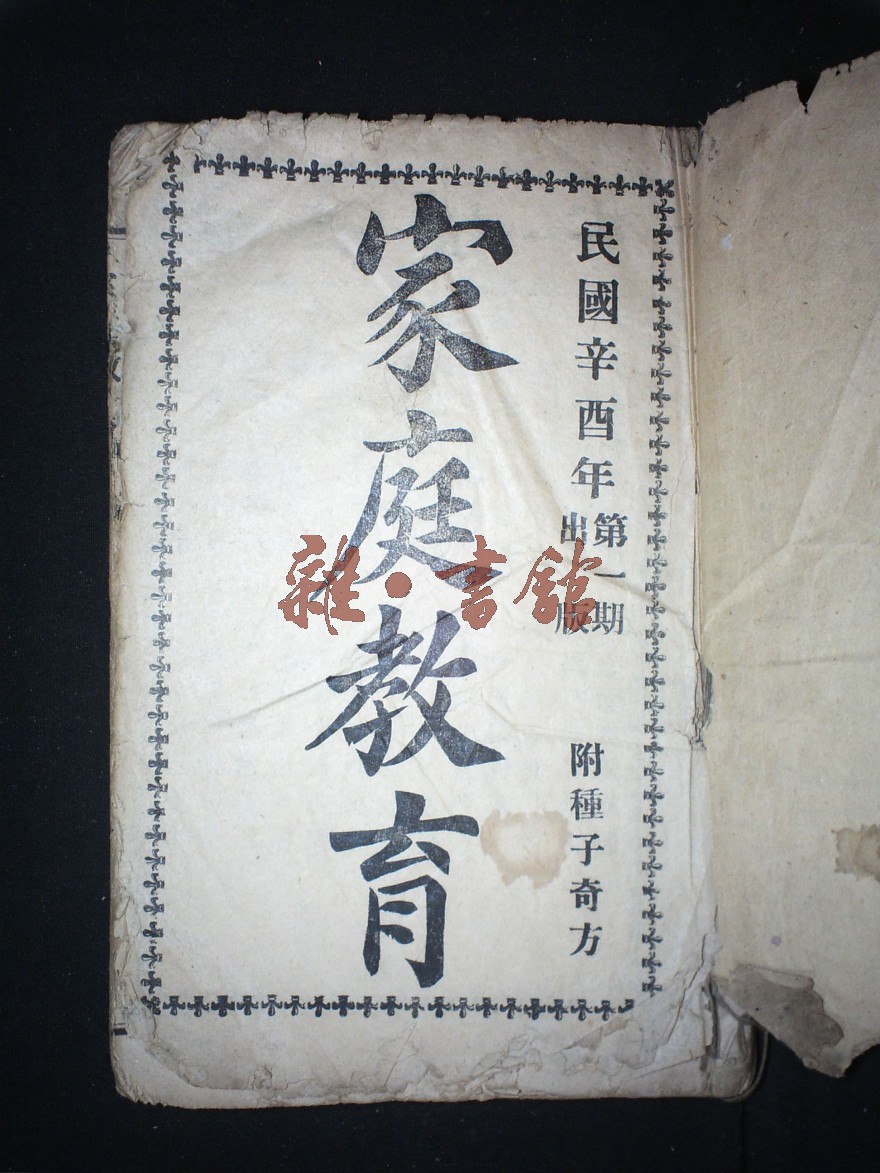 民國辛酉年第一期出版
附種子奇方
家庭教育
雜·書館